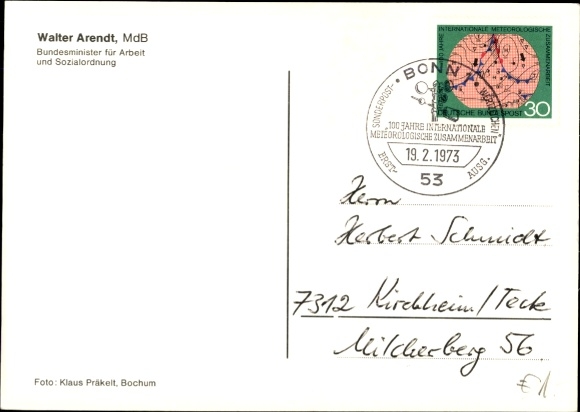 Walter Arendt, MdB
Bundesminister für Arbeit
und Sozialordnung
100 JAHRE INTERNATIONALE METEOROLOGISCHE ZUSAMMENARBEIT
DEUTSCHE BUNDESPOST 30
BONN
SONDERPOST-
WERTZEICHEN
„100 JAHRE INTERNATIONALE
METEOROLOGISCHE ZUSAMMENARBEIT"
19.2.1973
ERST-
AUSG.
53
Herrn
Herbert Schmidt
7312 Kirchheim/Teck
Milcherberg 56
Foto: Klaus Präkelt, Bochum
€1.